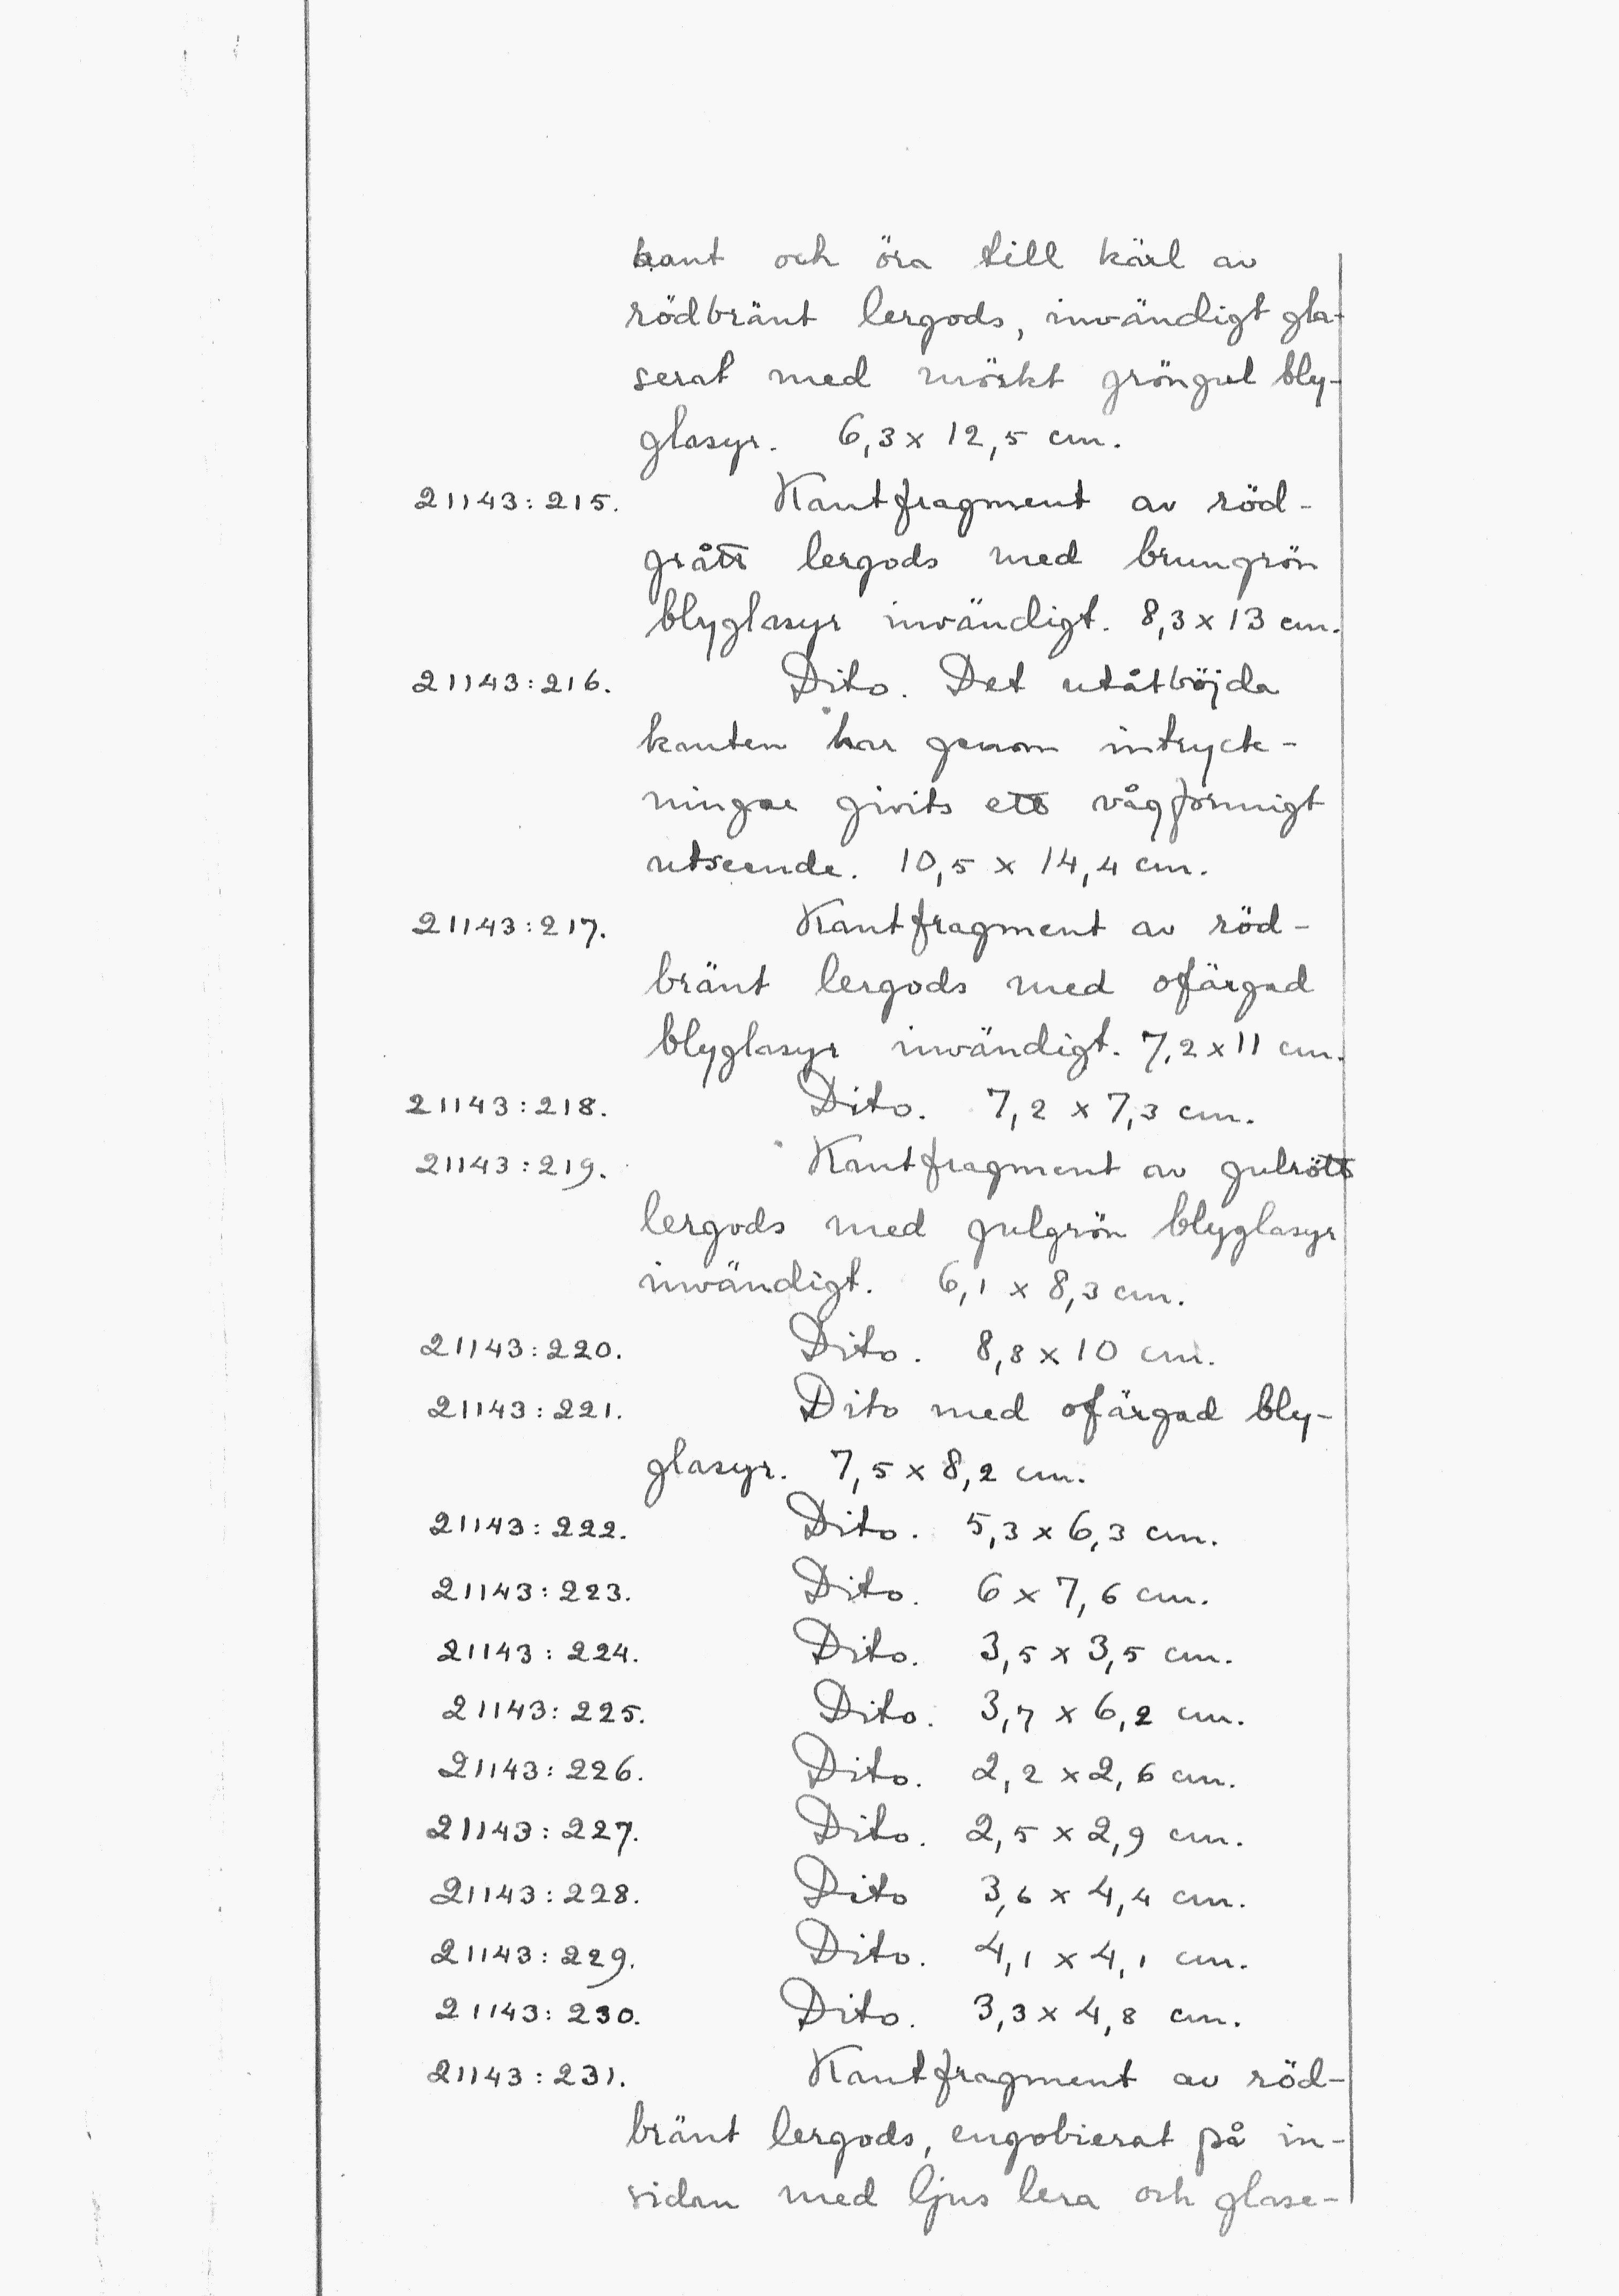 kant och öra till kärl av
rödbränt lergods, invändigt gla-
serat med mörkt gröngul bly-
glasyr. 6,3 x 12,5 cm.
21143:215. Kantfragment av röd-
grått lergods med brungrön
blyglasyr invändigt. 8,3 x 13 cm.
21143:216. Dito. Det utåtböjda
kanten har genom intryck-
ningar givits ett vågformigt
utseende. 10,5 x 14,4 cm.
21143:217. Kantfragment av röd-
bränt lergods med ofärgad
blyglasyr invändigt. 7,2 x 11 cm.
21143:218. Dito. 7,2 x 7,3 cm.
21143:219. Kantfragment av gulrött
lergods med gulgrön blyglasyr
invändigt. 6,1 x 8,3 cm.
21143:220. Dito. 8,8 x 10 cm.
21143:221. Dito med ofärgad bly-
glasyr. 7,5 x 8,2 cm.
21143:222. Dito. 5,3 x 6,3 cm.
21143:223. Dito. 6 x 7,6 cm.
21143:224. Dito. 3,5 x 3,5 cm.
21143:225. Dito. 3,7 x 6,2 cm.
21143:226. Dito. 2,2 x 2,6 cm.
21143:227. Dito. 2,5 x 2,9 cm.
21143:228. Dito 3,6 x 4,4 cm.
21143:229. Dito. 4,1 x 4,1 cm.
21143:230. Dito. 3,3 x 4,8 cm.
21143:231. Kantfragment av röd-
bränt lergods, engobierat på in-
sidan med ljus lera och glase-